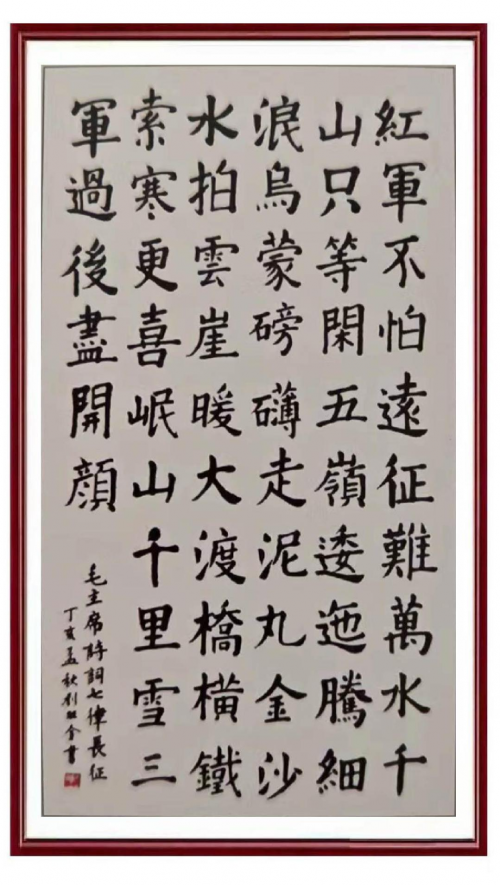 紅軍不怕遠征難萬水千
山只等閑五嶺逶迤騰細
浪烏蒙磅礴走泥丸金沙
水拍雲崖暖大渡橋橫鐵
索寒更喜岷山千里雪三
軍過後盡開顔
毛主席詩詞七律長征
丁亥孟秋劉 金書